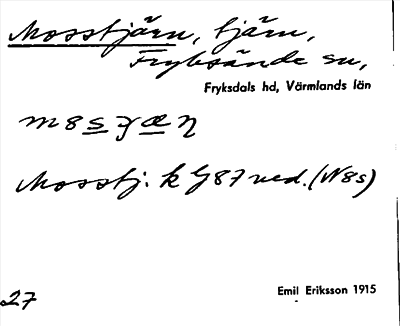 Mosstjärn, tjärn,
Fryksände sn,
Fryksdals hd, Värmlands län
Mosstj. k G87 ved. (N8s)
27
Emil Eriksson 1915